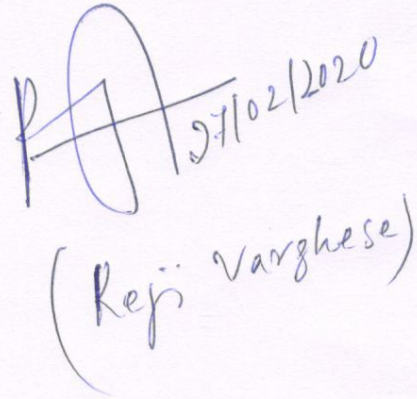 27/02/2020
(Reji Varghese)